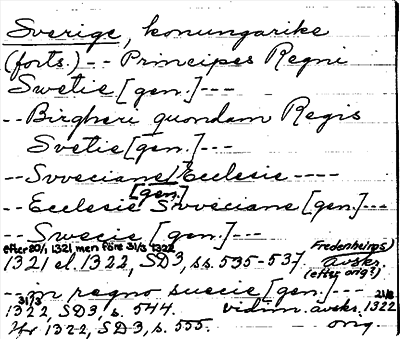 Sverige, konungarike
(forts.) -- Principes Regni
Swetie [gen.] ---
-- Birgheri quondam Regis
Svetie [gen.] ---
-- Svveciane Ecclesie ----
[gen.]
-- Ecclesie Svveciane [gen.] ---
-- Swecie [gen.] ---
efter 20/1 1321 men före 31/3 1322
1321 el. 1322, SD3, ss. 535-537
Fredenheims)
avskr.
(efter orig?)
-- in regno suecie [gen.] ---
31/3
1322, SD3, s. 544.
vidim. avskr. 1322
Jfr 1322, SD3, s. 555.
orig.